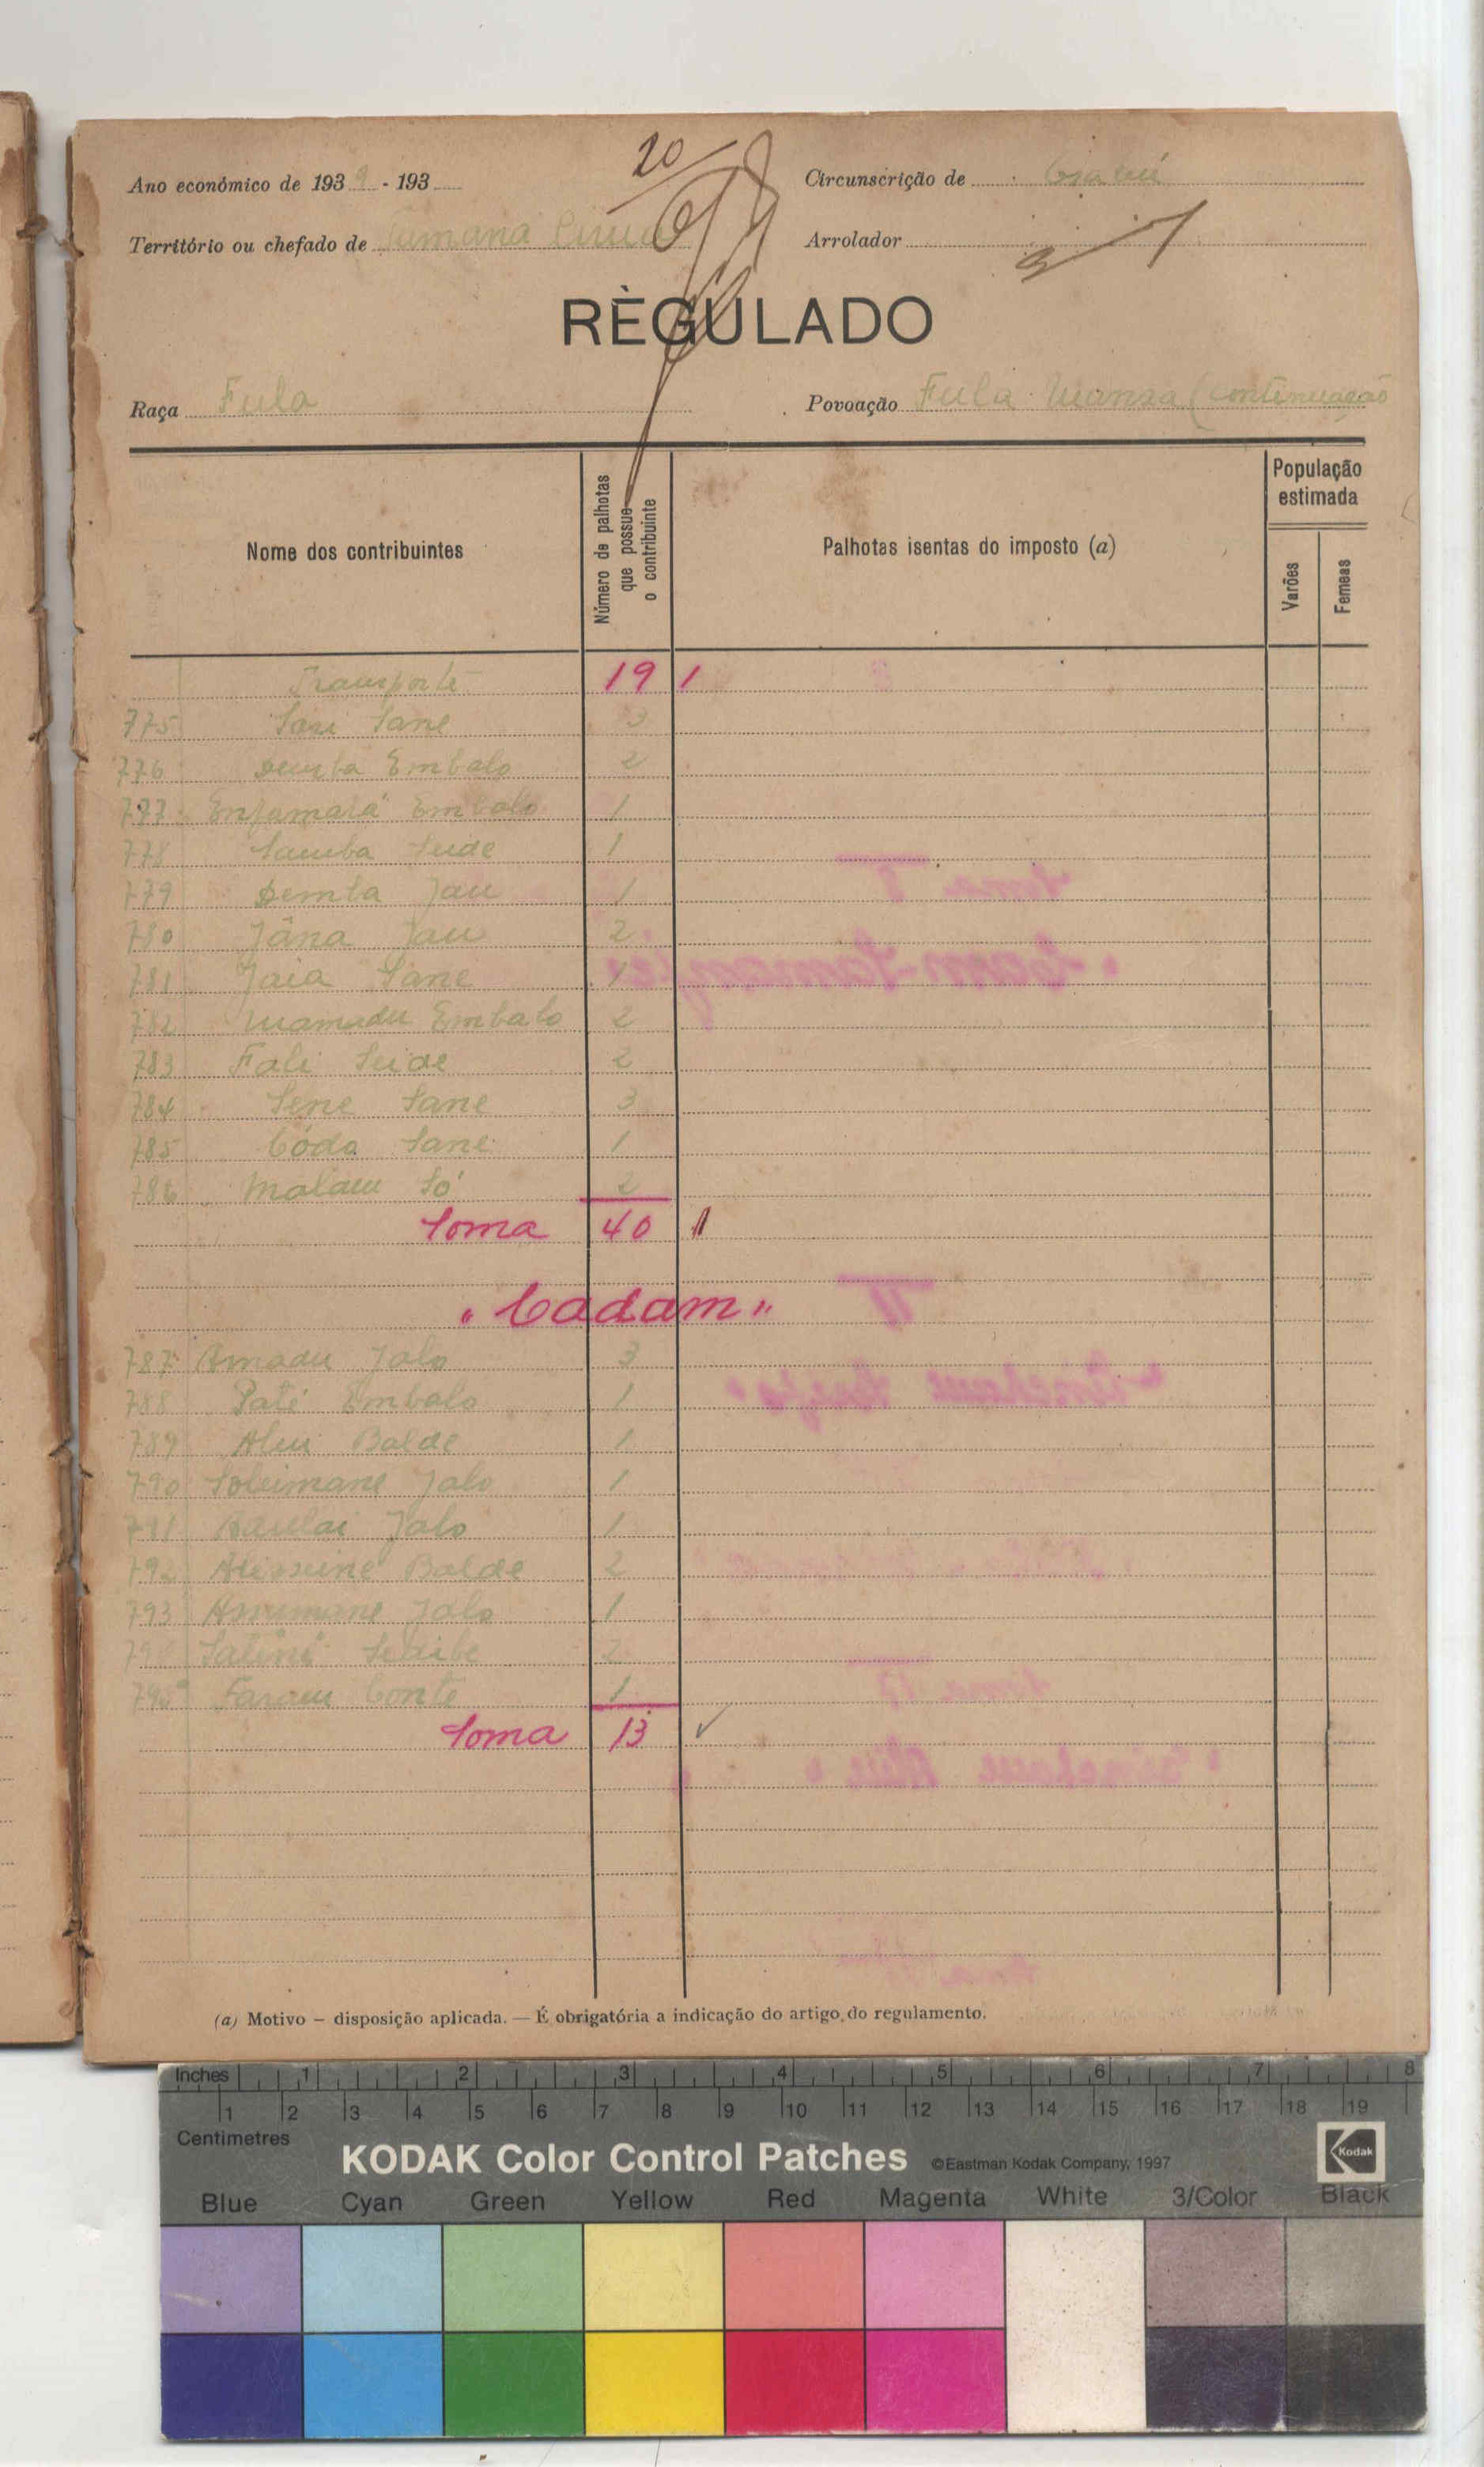 Ano económico de 1939 - 193
20
Circunscrição de Gabú
Território ou chefado de
Arrolador
RÈGULADO
Raça Fula
Povoação Fula Mansa (continuação
Nome dos contribuintes
Número de palhotas que possue o contribuinte
Palhotas isentas do imposto (a)
População estimada
Varões
Femeas
Transporte 19
775 Sane 3
776 Demba Embalo 2
777 Enfamará Embalo 1
778 Samba Seide 1
779 Demba Jau 1
780 Jána Jau 2
781 Jaia Sane 1
782 Mamadu Embalo 2
783 Fali Seide 2
784 Sene Sane 3
785 Códo Sane 1
786 Malam Só 2
Soma 40
"Cadam"
787 Amadu Jalo 3
788 Paté Embalo 1
789 Aliu Balde 1
790 Soleimane Jalo 1
791 Jalo 1
792 Balde 2
793 Jalo 1
794 2
795 Conte 1
Soma 13 ✓
(a) Motivo – disposição aplicada. — É obrigatória a indicação do artigo do regulamento.
Inches 1 2 3 4 5 6 7 8
1 2 3 4 5 6 7 8 9 10 11 12 13 14 15 16 17 18 19
Centimetres
KODAK Color Control Patches ©Eastman Kodak Company, 1997 Kodak
Blue Cyan Green Yellow Red Magenta White 3/Color Black